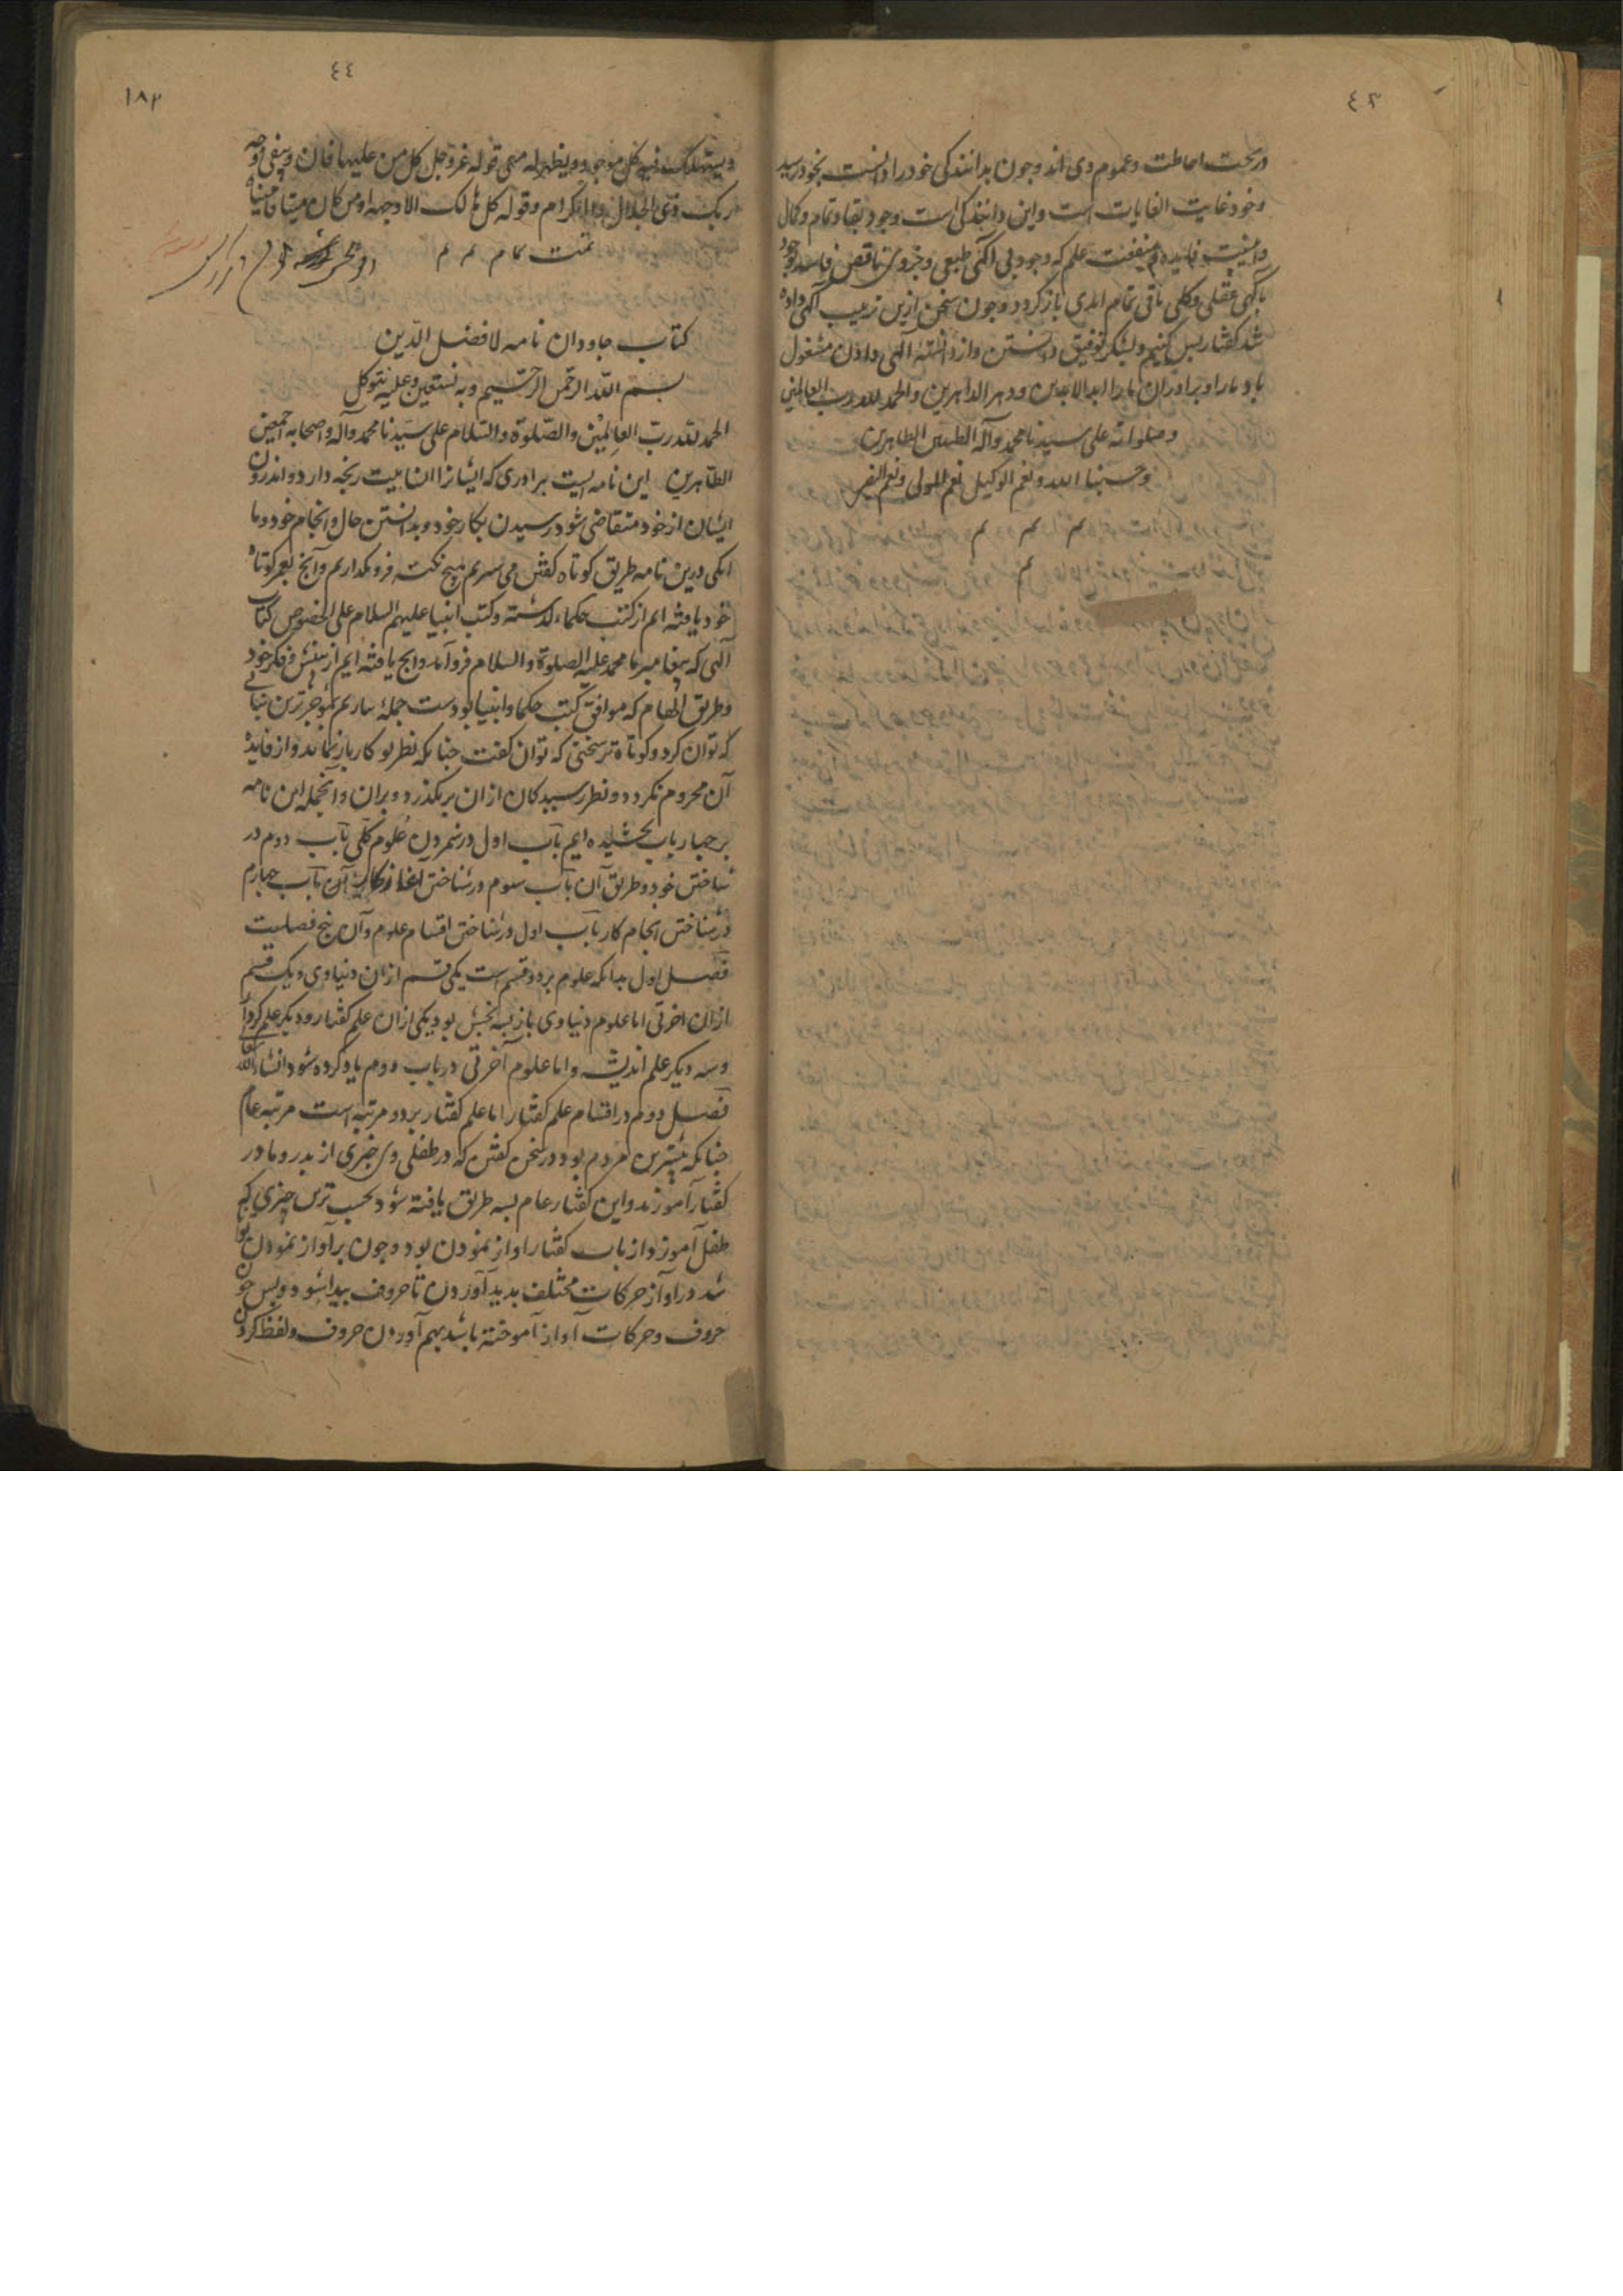 ٤٣
در تحت احاطت و عموم وی اند و چون بدانندگی خود را دانست بخود رسید
و خود غایت الغایات است و این دانندگی است وجود بقا و تمام و کمال
و اینست فایده و منفعت علم که وجود بی آگهی طبعی و جزوی ناقص فاسد بوجود
باگهی عقلی و کلی باقی تمام ابدی باز گردد و چون سخن ازین ترتیب آگهی داده
شد گفتار بس کنیم و بشکر توفیق دانستن و از دانسته آگهی دادن مشغول
باد ما را و برادران ما را ابد الابدین و دهر الداهرین و الحمد لله رب العالمین
و صلواته علی سیدنا محمد و آله الطیبین الطاهرین
و حسبنا الله و نعم الوکیل نعم المولی و نعم النصیر
م م م
م
٤٤
١٨٣
و یستهلک فیه کل موجود و یظهر له معنی قوله عز و جل کل من علیها فان و یبقی وجه
ربک ذی الجلال و الاکرام و قوله کل هالک الا وجهه او من کان میتا فاحییناه
تمت تمام م م
کتاب جاودان نامه لافضل الدین
بسم الله الرحمن الرحیم و به نستعین و علیه نتوکل
الحمد لله رب العالمین و الصلوة و السلام علی سیدنا محمد و آله و اصحابه اجمعین
الطاهرین این نامه ایست برادری که ایشانرا انابیت رنجه دارد و اندرون
ایشان از خود متقاضی شود رسیدن بکار خود و بدانستن حال و انجام خود و ما
انکی درین نامه طریق کوتاه گفتن می سپریم هیچ نکته فرو نگذاریم و آنچ بعمر کوتاه
خود یافته ایم از کتب حکماء گذشته و کتب انبیا علیهم السلام علی الخصوص کتاب
الهی که بپیغامبر ما محمد علیه الصلوة و السلام فرو آمد و انچ یافته ایم از بینش و فکر خود
و طریق الهام که موافق کتب حکما و انبیا بودست جمله بیاریم بموجزترین بیانی
که توان کرد و کوتاه تر سخنی که توان گفت چنانکه نظر نوکار باز نماند و از فایدهٔ
آن محروم نگردد و نظر رسیدگان ازان برنگذرد و بران و آنجمله این نامه
بر چهار باب بخشیده ایم باب اول در شمردن علوم کلی باب دوم در
شناختن خود و طریق آن باب سوم در شناختن اغاز کار آن باب چهارم
در شناختن انجام کار باب اول در شناختن اقسام علوم و آن پنج فصلست
فصل اول بدانکه علوم بر دو قسم است یکی قسم ازان دنیاوی و یک قسم
ازان اخرتی اما علوم دنیاوی باز بسه بخش بود یکی ازان علم گفتار و دیگر علم کردار
و سه دیگر علم اندیشه و اما علوم آخرتی در باب دوم یاد کرده شود انشاء الله تعالی
فصل دوم در اقسام علم گفتار اما علم گفتار بر دو مرتبه است مرتبه عام
چنانکه بیشترین مردم بود در سخن گفتن که در طفلی وی خبری از پدر و مادر
گفتار آموزند و این گفتار عام بسه طریق یافته شود نخست ترین چیزی که
طفل آموزد از باب گفتار اواز نمودن بود و چون بر آواز نمودن توانا
شد در اواز حرکات مختلف پدید آوردن تا حروف پیدا شود و پس چون
حروف و حرکات آواز آموخته باشد بهم آوردن حروف و لفظ کردن